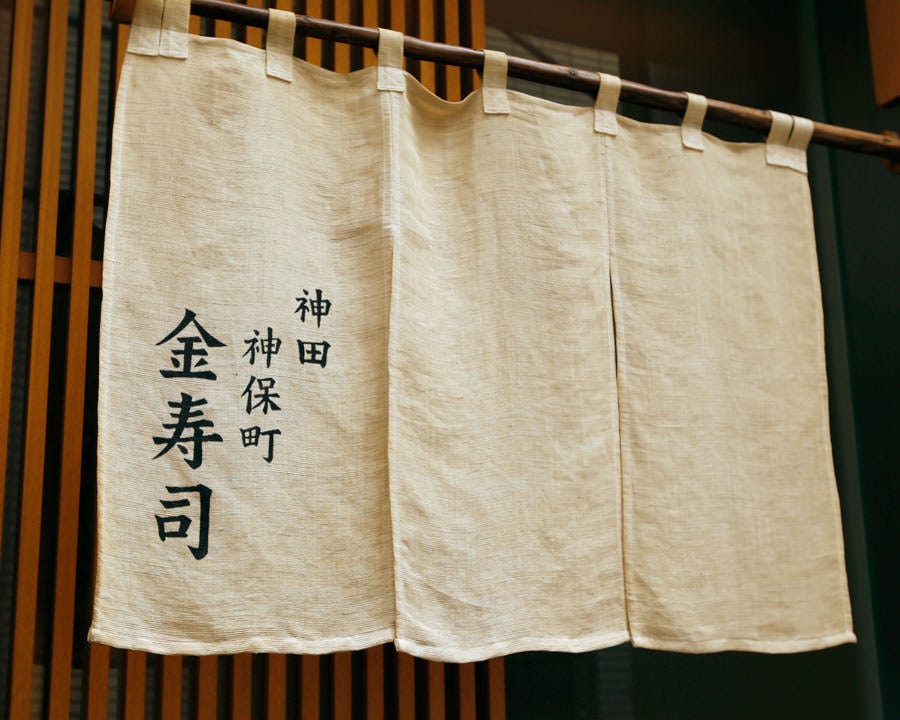 神田
神保町
金寿司